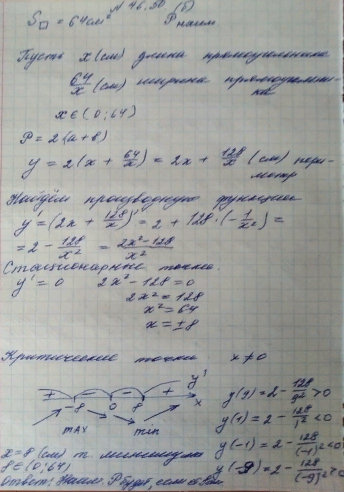 N 46.50 (б)
S▭ = 64 см² P наим.
Пусть x (см) длина прямоугольника
64/x (см) ширина прямоугольника
x ∈ (0; 64)
P = 2(a+b)
y = 2(x + 64/x) = 2x + 128/x (см) периметр
Найдём производную функции
y' = (2x + 128/x)' = 2 + 128·(-1/x²) =
= 2 - 128/x² = (2x² - 128)/x²
Стационарные точки.
y' = 0 2x² - 128 = 0
2x² = 128
x² = 64
x = ±8
Критические точки x ≠ 0
+ - - + y'
-8 0 8 x
max min
y(9) = 2 - 128/9² > 0
y(1) = 2 - 128/1² < 0
y(-1) = 2 - 128/(-1)² < 0
y(-9) = 2 - 128/(-9)² > 0
x = 8 (см) т.
8 ∈ (0; 64)
Ответ: Наим. P будет, если